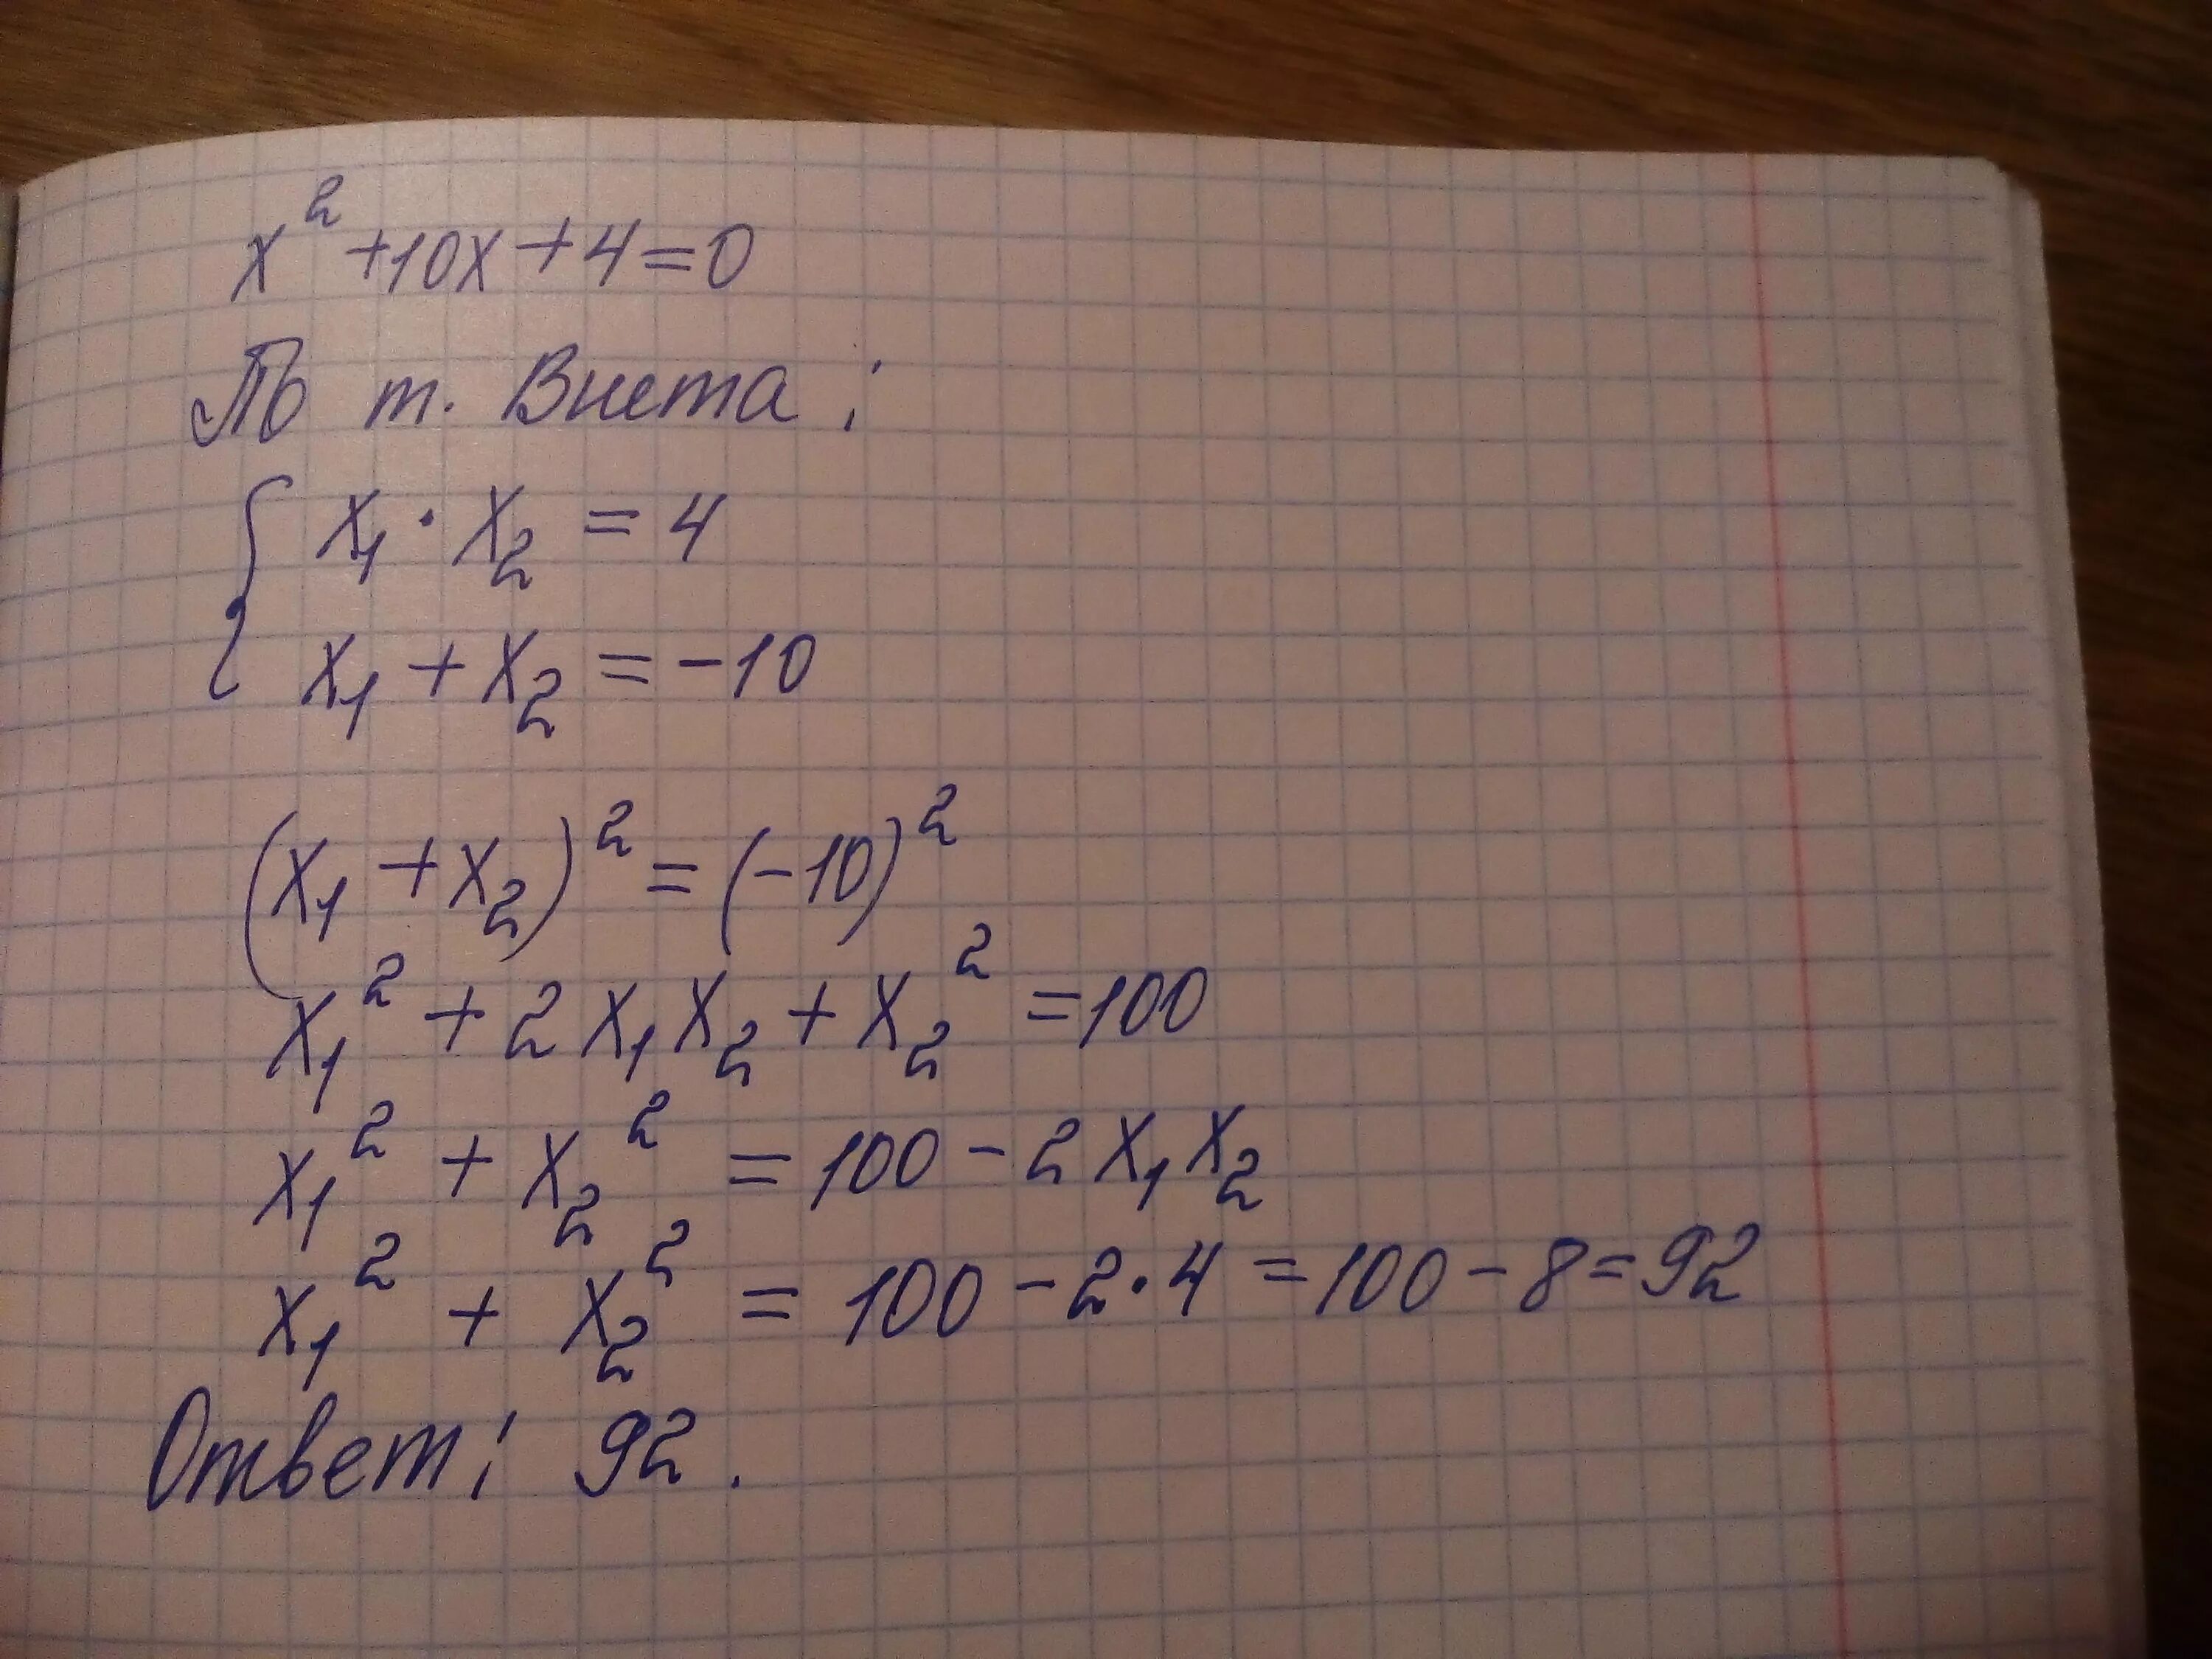 x² + 10x + 4 = 0
По т. Виета:
{ x₁ · x₂ = 4
x₁ + x₂ = -10
(x₁ + x₂)² = (-10)²
x₁² + 2x₁x₂ + x₂² = 100
x₁² + x₂² = 100 - 2x₁x₂
x₁² + x₂² = 100 - 2·4 = 100 - 8 = 92
Ответ: 92.